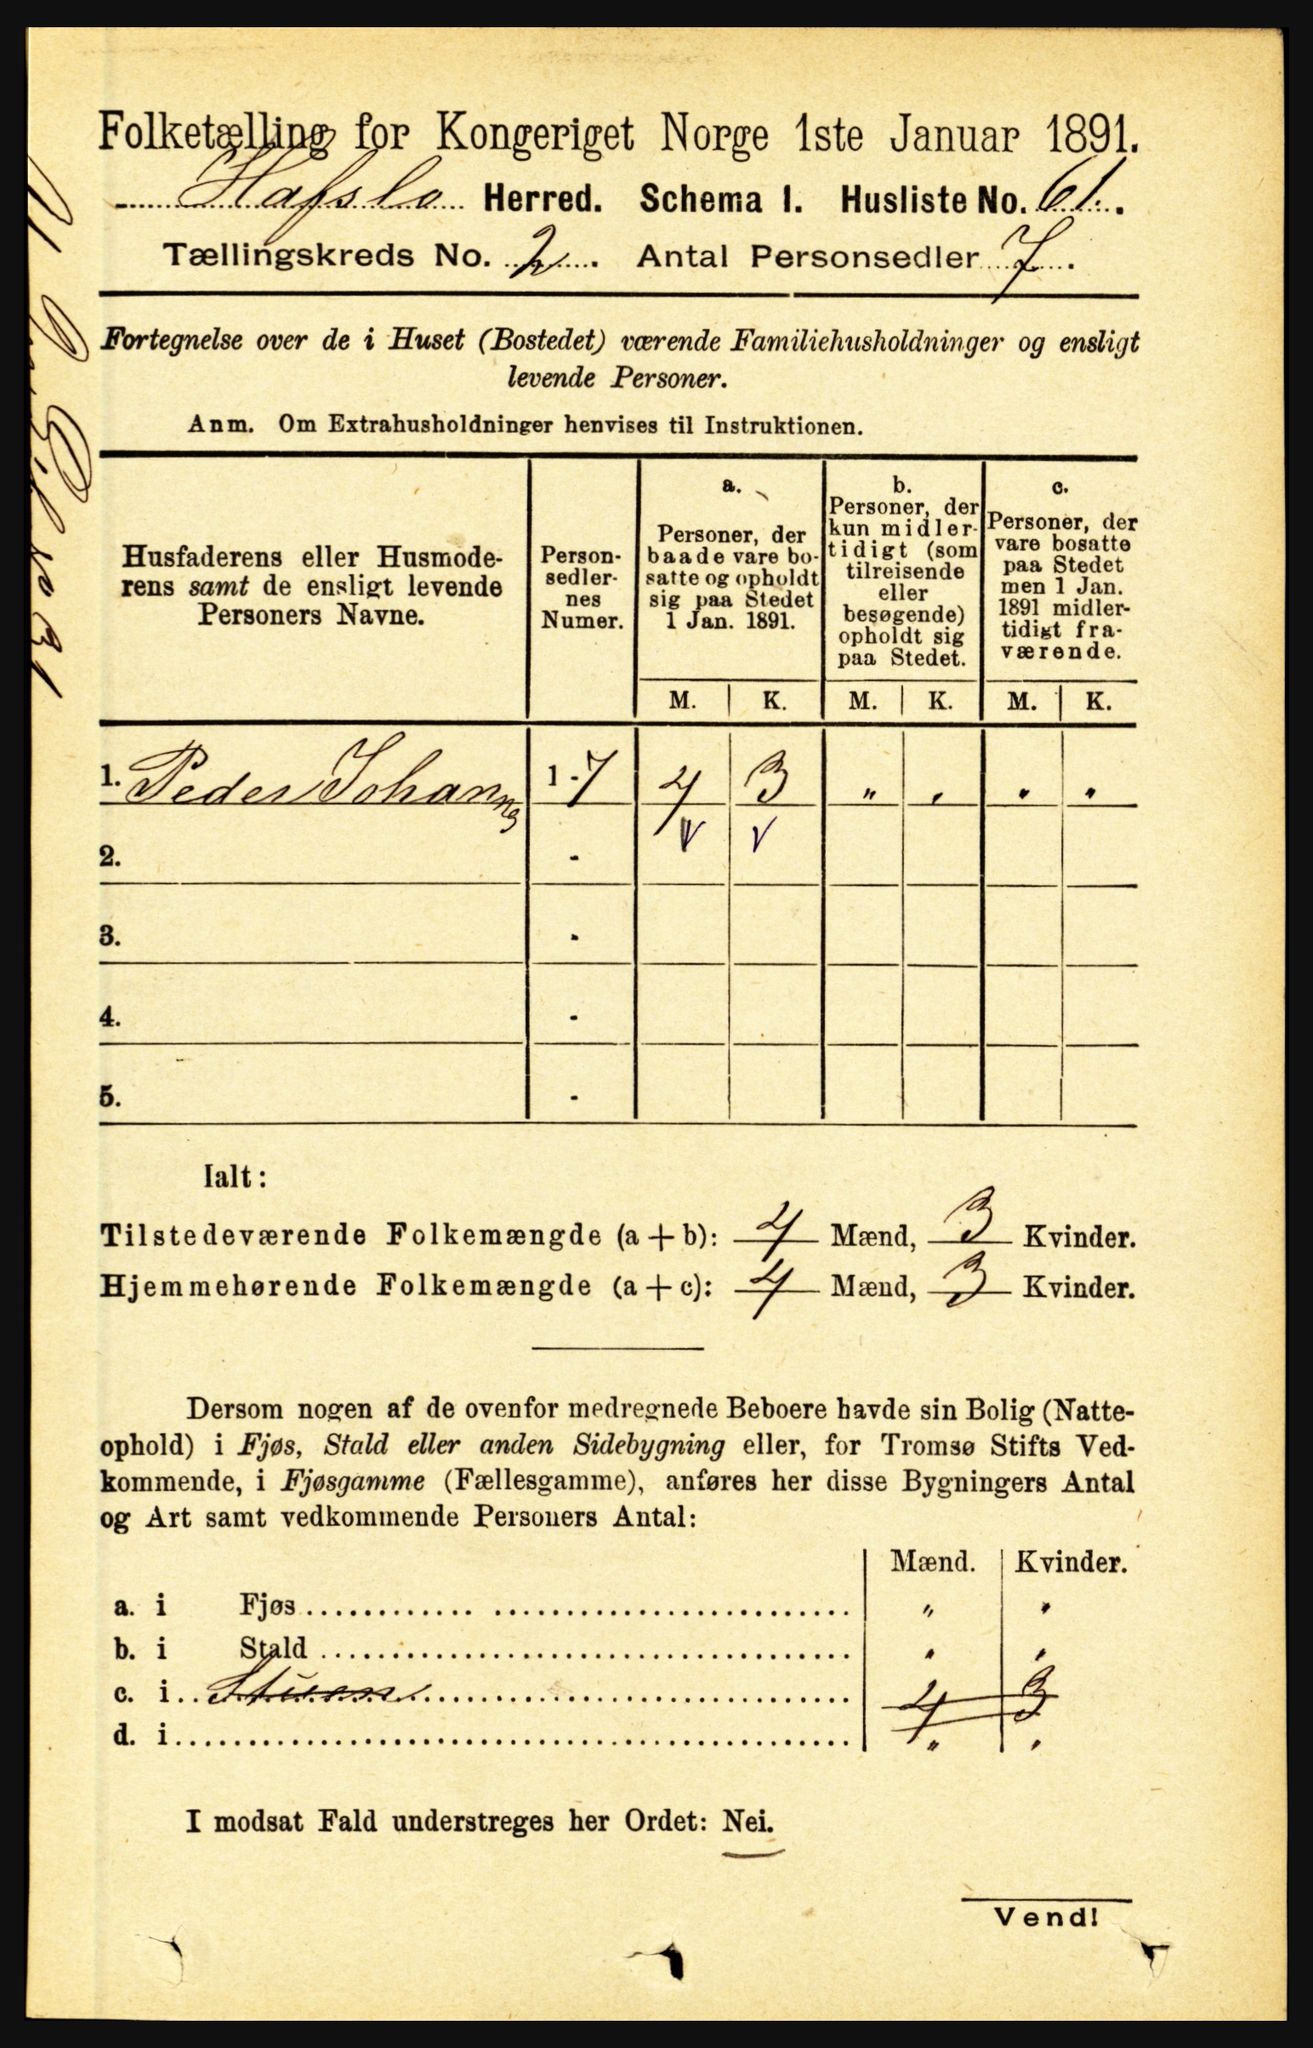 Folketælling for Kongeriget Norge 1ste Januar 1891.
Hafslo Herred. Schema 1. Husliste No. 61.
Tællingskreds No. 2. Antal Personsedler 7.
Fortegnelse over de i Huset (Bostedet) værende Familiehusholdninger og ensligt
levende Personer.
Anm. Om Extrahusholdninger henvises til Instruktionen.
Husfaderens eller Husmode-
rens samt de ensligt levende
Personers Navne.
Person-
sedler-
nes
Numer.
a.
Personer, der
baade vare bo-
satte og opholdt
sig paa Stedet
1 Jan. 1891.
b.
Personer, der
kun midler-
tidigt (som
tilreisende
eller
besøgende)
opholdt sig
paa Stedet.
c.
Personer, der
vare bosatte
paa Stedet
men 1 Jan.
1891 midler-
tidigt fra-
værende.
M. K. M. K. M. K.
1. Peder Johannes 1 - 7 4 3 " " " "
2. - V V
3. -
4. -
5. -
Ialt:
Tilstedeværende Folkemængde (a + b): 4 Mænd, 3 Kvinder.
Hjemmehørende Folkemængde (a + c): 4 Mænd, 3 Kvinder.
Dersom nogen af de ovenfor medregnede Beboere havde sin Bolig (Natte-
ophold) i Fjøs, Stald eller anden Sidebygning eller, for Tromsø Stifts Ved-
kommende, i Fjøsgamme (Fællesgamme), anføres her disse Bygningers Antal
og Art samt vedkommende Personers Antal:
Mænd. Kvinder.
a. i Fjøs " "
b. i Stald " "
c. i Stuen 4 3
d. i " "
I modsat Fald understreges her Ordet: Nei.
Vend!